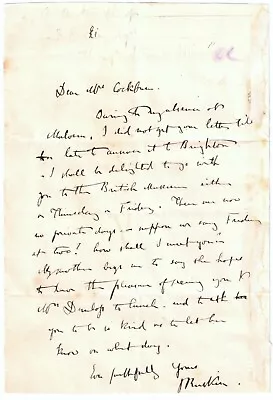 £1
Dear Mrs Cockburn.
Owing to my absence at
Malvern, I did not get your letter till
too late to answer it to Brighton
I shall be delighted to go with
you to the British Museum either
on Thursday or Friday. There are now
no private days - suppose we say Friday
at two? how shall I meet you -
My mother begs me to say she hopes
to have the pleasure of seeing you &
Mrs Dunlop to lunch - and to ask
you to be so kind as to let her
know on what day.
Ever faithfully Yours
J Ruskin.